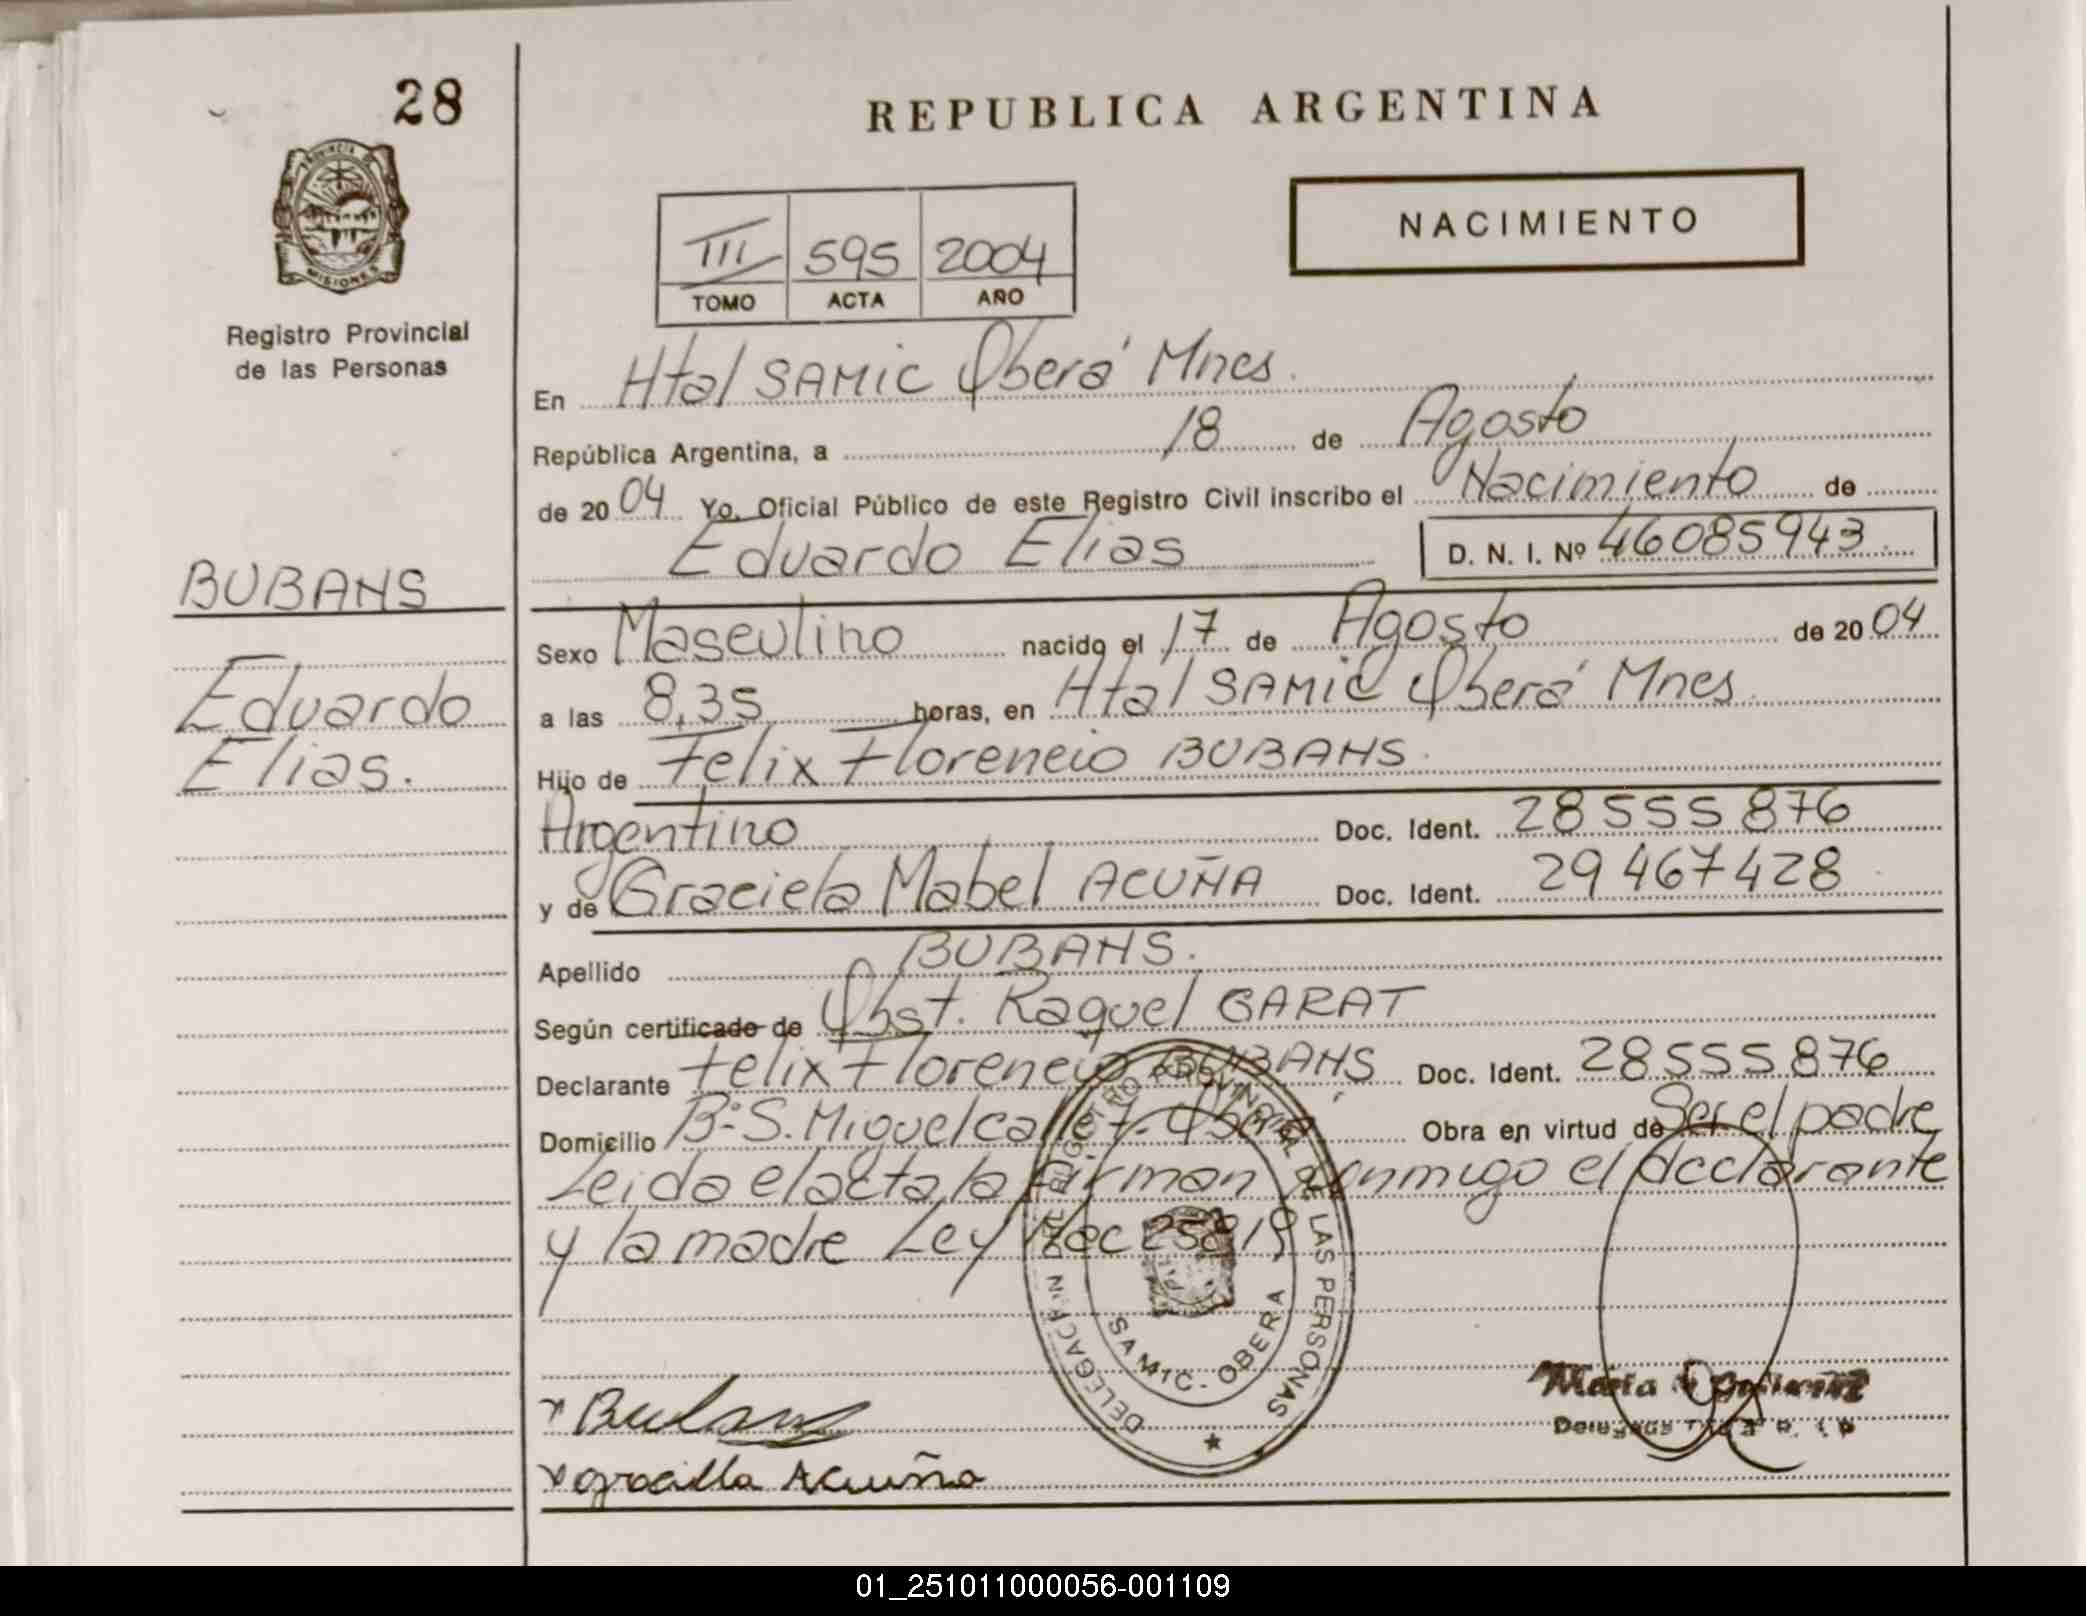 28
REPUBLICA ARGENTINA
NACIMIENTO
III 595 2004
TOMO ACTA AÑO
PROVINCIA DE MISIONES
Registro Provincial
de las Personas
En Htal SAMIC Oberá Mnes.
República Argentina, a 18 de Agosto
de 2004 Yo, Oficial Público de este Registro Civil inscribo el Nacimiento de
Eduardo Elias D. N. I. Nº 46085943
BUBANS
Eduardo
Elias.
Sexo Masculino nacido el 17 de Agosto de 2004
a las 8,35 horas, en Htal SAMIC Oberá Mnes.
Hijo de Felix Florencio BUBANS.
Argentino Doc. Ident. 28555876
y de Graciela Mabel ACUÑA Doc. Ident. 29467428
Apellido BUBANS.
Según certificado de Obst. Raquel GARAT
Declarante Felix Florencio BUBANS Doc. Ident. 28555876
Domicilio Bº S. Miguel calle 7. Oberá Obra en virtud de Ser el padre
Leida el acta la firman conmigo el declarante
y la madre Ley Nac 25819
DELEGACION DEL REGISTRO PROVINCIAL DE LAS PERSONAS
SAMIC - OBERA
Maria
Bubans
Graciela Acuña
01_251011000056-001109